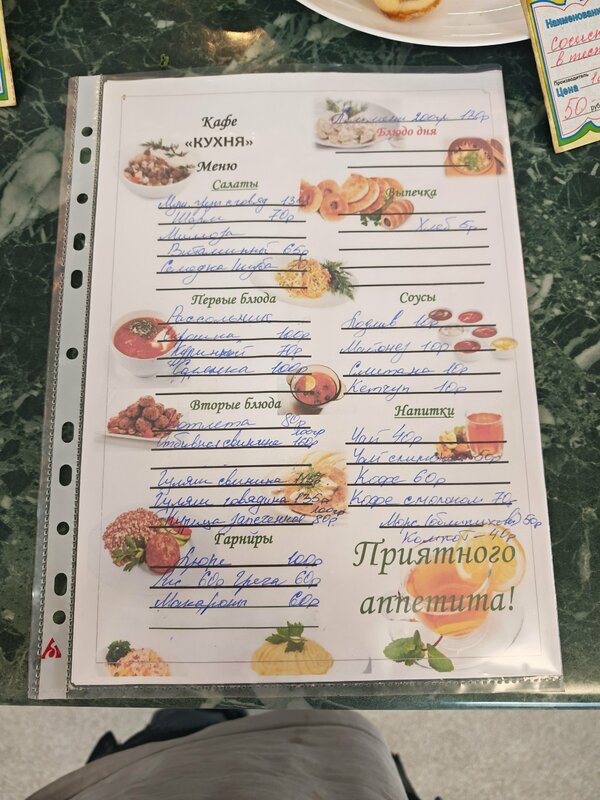 Кафе
«КУХНЯ»
Меню
Салаты
70р
Мимоза
Витаминный 65р
Селедка шуба
Первые блюда
Рассольник
100р
Куриный 70р
Солянка 100р
Вторые блюда
Котлета 80р
Отбивная свинина 100гр 160р
Гуляш свинина
Гуляш говядина 135р
Курица запеченная 100гр 80р
Гарниры
Пюре 100р
Рис 60р Греча 60р
Макароны 60р
Пельмени 200гр 130р
Блюдо дня
Выпечка
Хлеб 5р
Соусы
Подлив 10р
Майонез 10р
Сметана 10р
Кетчуп 10р
Напитки
Чай 40р
Чай с лимоном 50р
Кофе 60р
Кофе с молоком 70р
Морс (облепиховый) 50р
Компот - 40р
Приятного
аппетита!
Наименование
в тесте
Производитель
Цена
50 руб